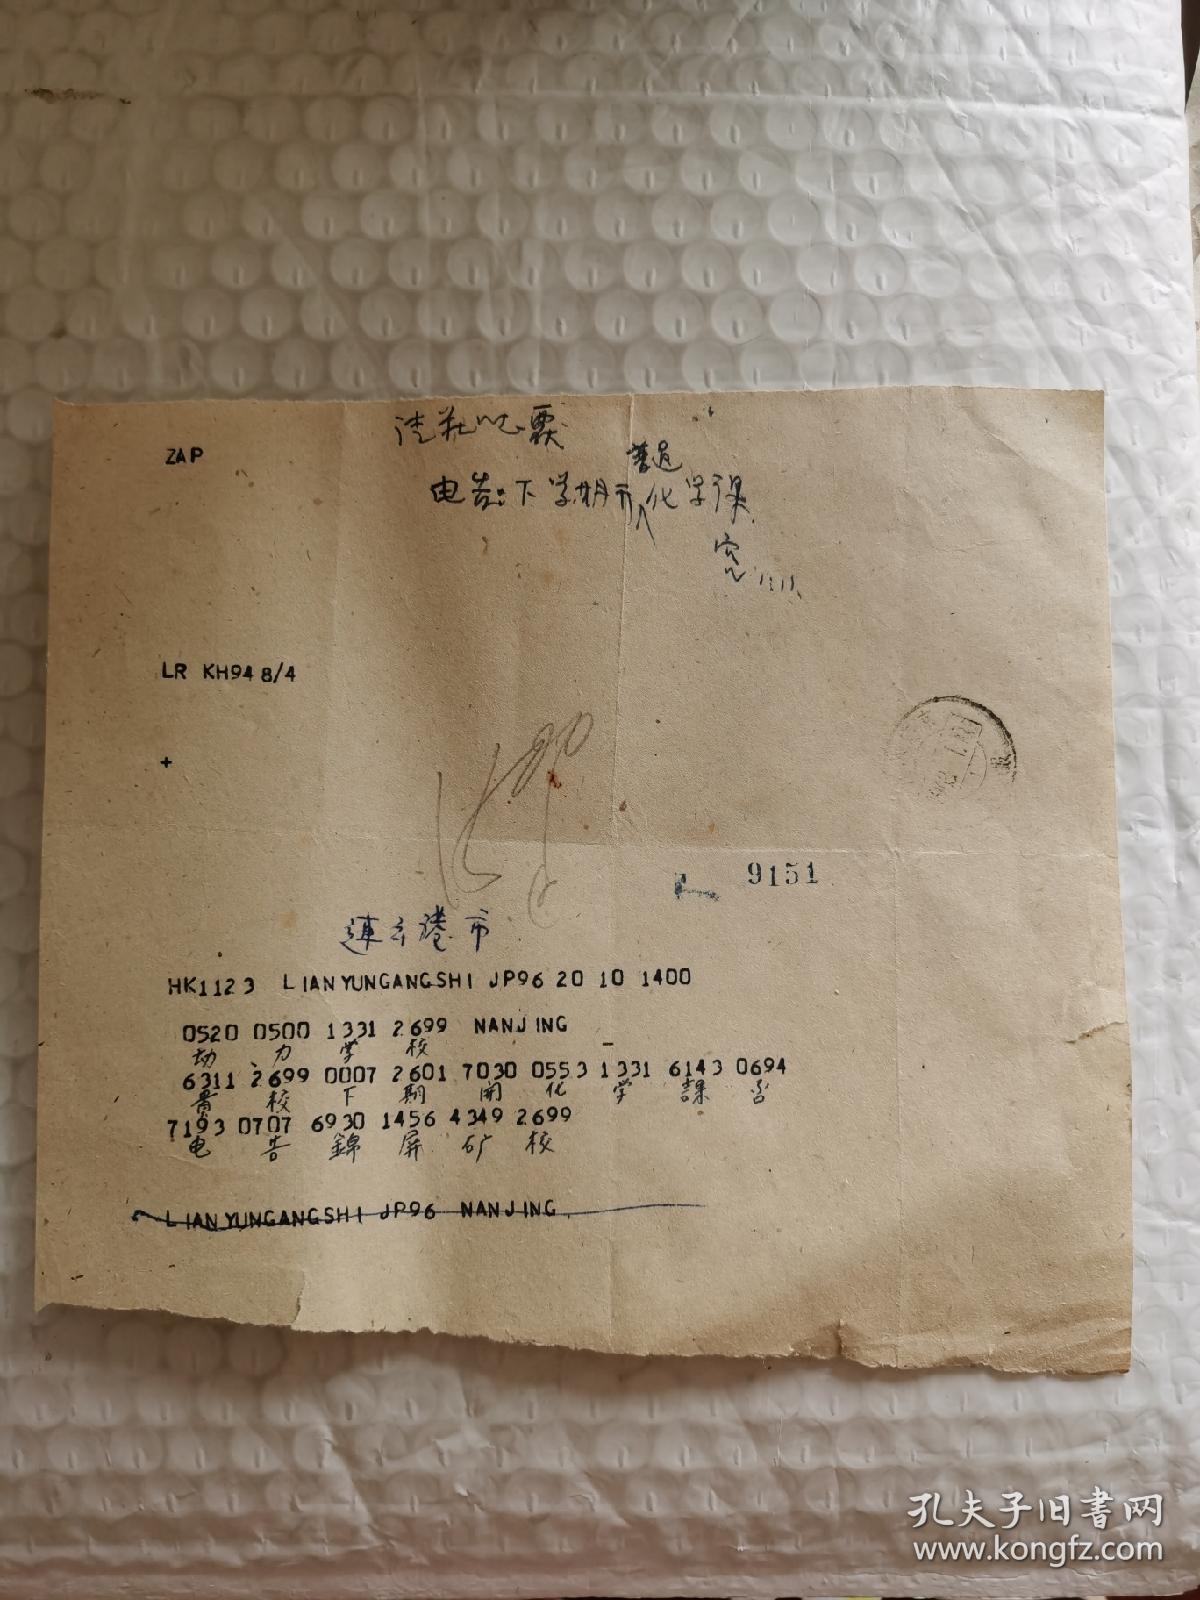 普通
电告:下学期开化学课
ZAP
LR KH94 8/4
+
9151
連云港市
HK112 3 LIANYUNGANGSHI JP96 20 10 1400
0520 0500 1331 2699 NANJING
动 力 学 校
6311 2699 0007 2601 7030 0553 1331 6143 0694
 校 下 期 開 化 学 課 否
7193 0707 6930 1456 4349 2699
电 告 錦 屏 矿 校
LIANYUNGANGSHI JP96 NANJING
孔夫子旧书网
www.kongfz.com